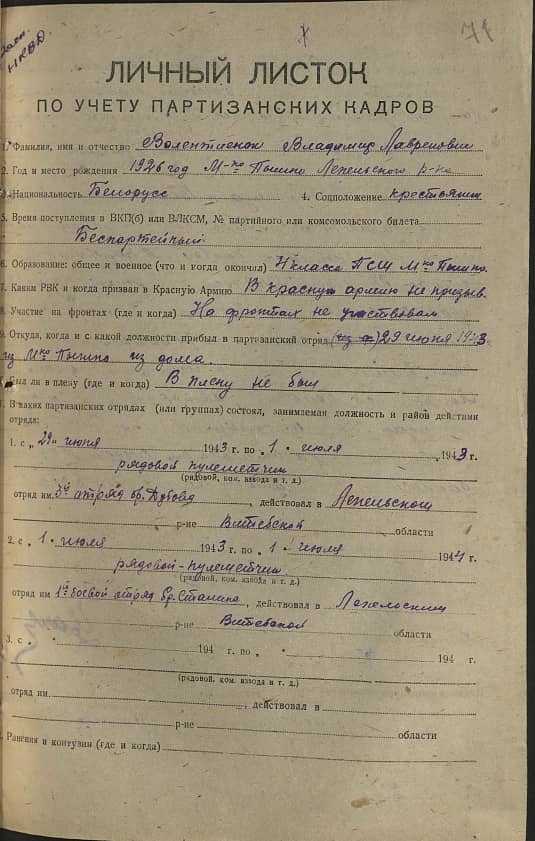 71
НКВД.
ЛИЧНЫЙ ЛИСТОК
ПО УЧЕТУ ПАРТИЗАНСКИХ КАДРОВ
1. Фамилия, имя и отчество Волентиенок Владимир Лавренович
2. Год и место рождения 1926 год М-ко Пышно Лепельского р-на
3. Национальность Белорусс 4. Соцположение крестьянин
5. Время поступления в ВКП(б) или ВЛКСМ, № партийного или комсомольского билета
Беспартейный
6. Образование: общее и военное (что и когда окончил) 4 класса ПСШ М-ко Пышно.
7. Каким РВК и когда призван в Красную Армию В красную армию не призыв.
8. Участие на фронтах (где и когда) На фронтах не участвовал
9. Откуда, когда и с какой должности прибыл в партизанский отряд 29 июня 1943
из М-ко Пышно из дома.
Был ли в плену (где и когда) В плену не был
В каких партизанских отрядах (или группах) состоял, занимаемая должность и район действия
отряда:
1. с „29" июня 1943 г. по „1" июля 1943 г.
рядовой пулеметчик
(рядовой, ком. взвода и т. д.)
отряд им. 3й отряд бр. Дубова, действовал в Лепельском
р-не Витебской области
2. с „1" июля 1943 г. по „1" июля 1944 г.
рядовой-пулеметчик
(рядовой, ком. взвода и т. д.)
отряд им. 1й боевой отряд бр. Сталина, действовал в Лепельским
р-не Витебской области
3. с „ " 194 г. по „ " 194 г.
(рядовой, ком. взвода и т. д.)
отряд им. , действовал в
р-не области
Ранения и контузии (где и когда)